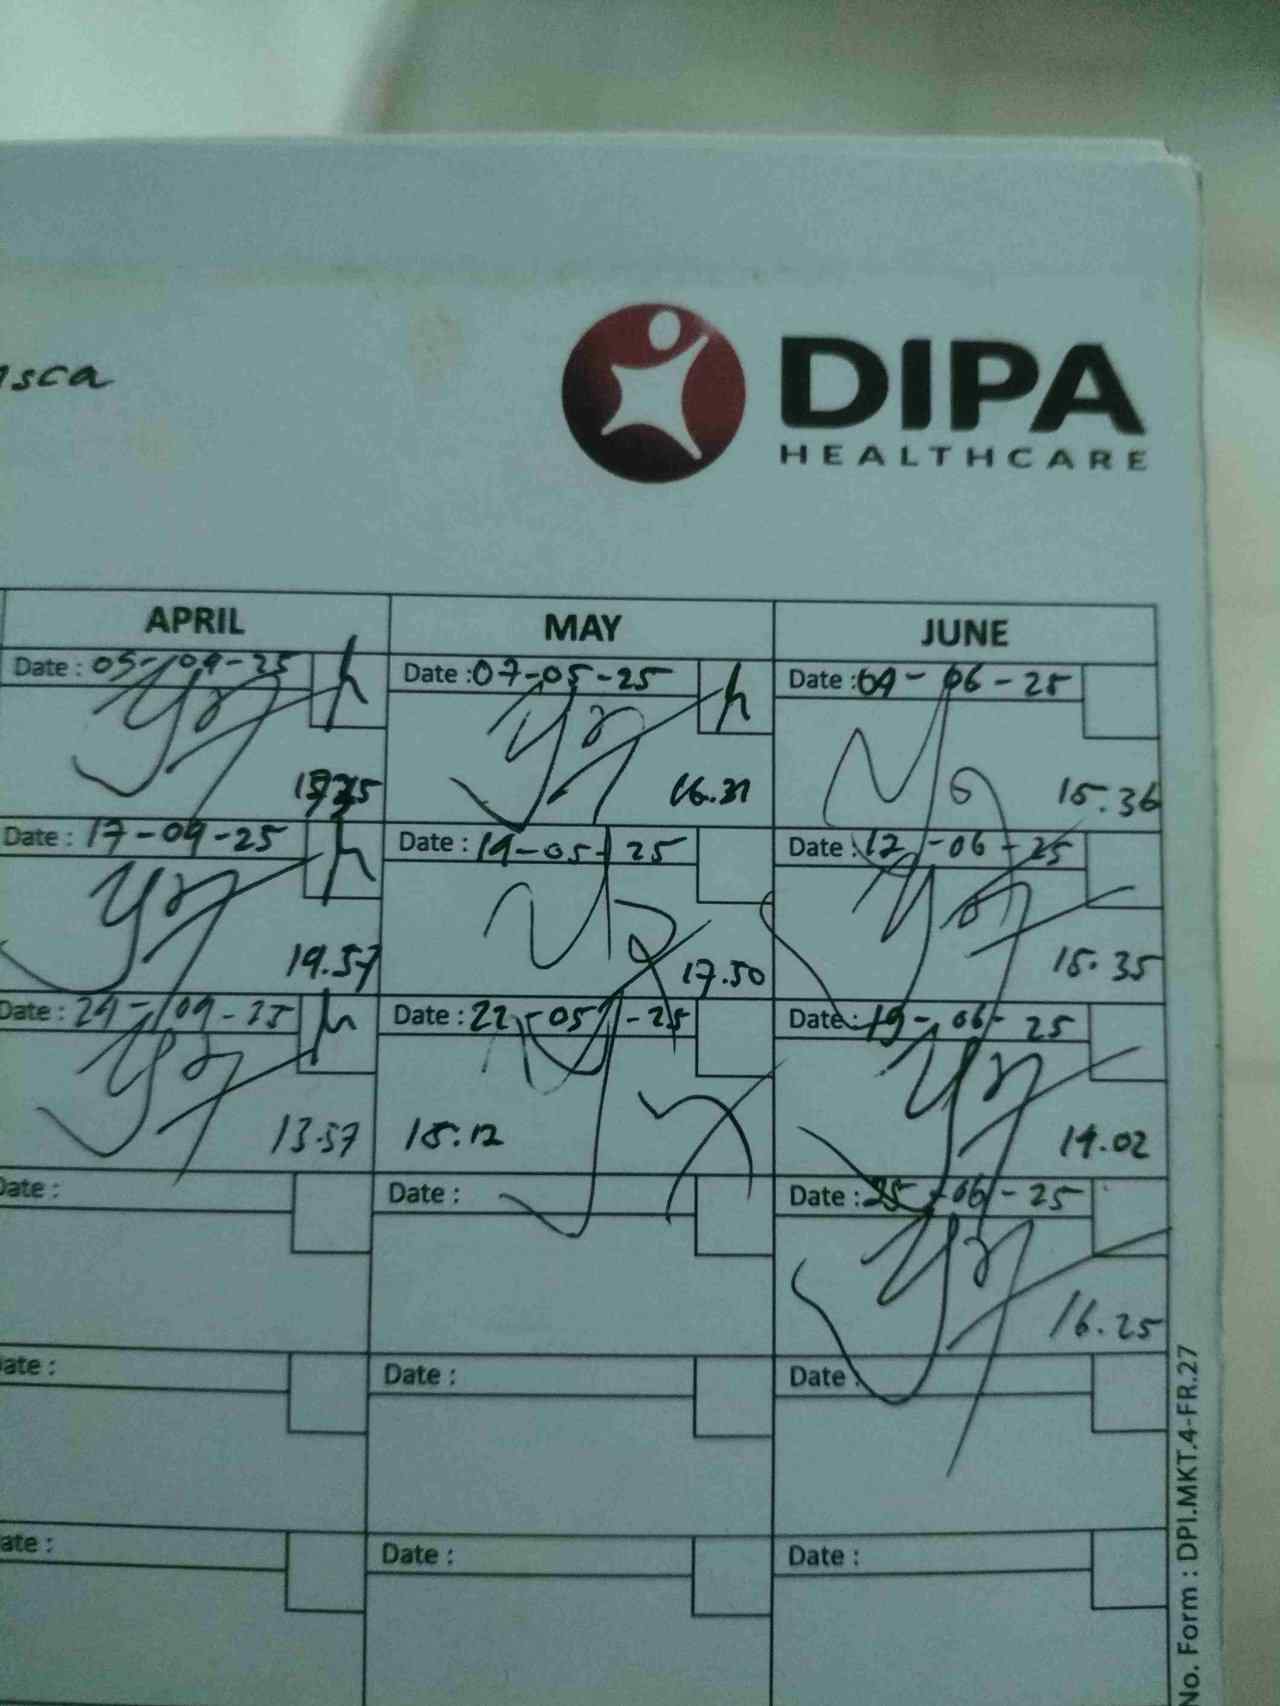 DIPA
HEALTHCARE
APRIL MAY JUNE
Date : 05-04-25 Date : 07-05-25 Date : 04-06-25
16.31 15.36
Date : 17-04-25 Date : 14-05-25 Date : 12-06-25
14.57 17.50 15.35
Date : 24-04-25 Date : 22-05-25 Date : 19-06-25
13.57 15.12 14.02
Date : Date : Date : 25-06-25
16.25
Date : Date : Date :
Date : Date : Date :
No. Form : DPI.MKT.4-FR.27